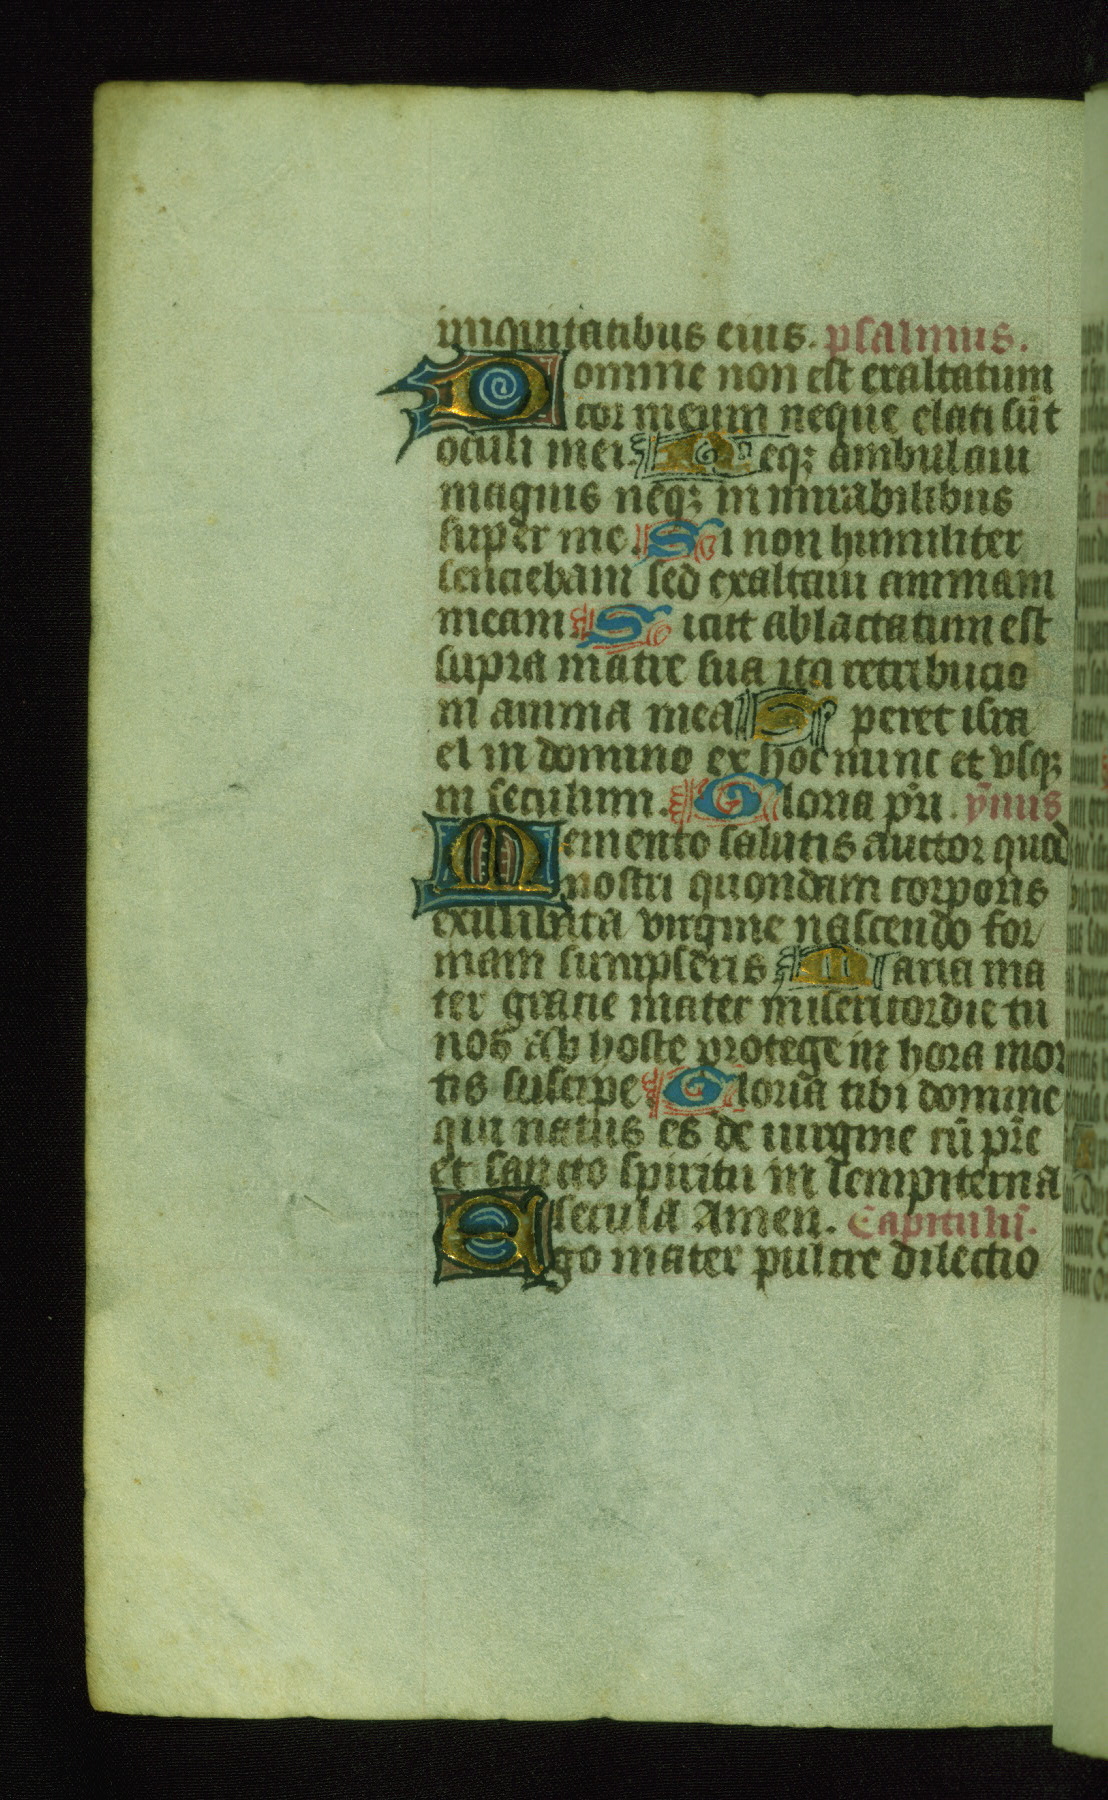 iniquitatibus eius. psalmus.
Domine non est exaltatum
cor meum neque elati su̅t
oculi mei. Neqꝫ ambulaui
magnis neqꝫ in mirabilibus
super me. Si non humiliter
senciebam sed exaltaui animam
meam Sicut ablactatum est
supra matre sua ita retribucio
in anima mea Speret isra
el in domino ex hoc nunc et vsqꝫ
in seculum. Gloria pr̅i. ẏmus
Memento salutis auctor quod
nostri quondam corporis
exillibata virgine nascendo for
mam sumpseris Maria ma
ter gracie mater misericordie tu
nos ab hoste protege in hora mor
tis suscipe Gloria tibi domine
qui natus es de uirgine cu̅ pr̅e
et sancto spiritu in sempiterna
secula Amen. Capitulu̅.
Ego mater pulcre dilectio